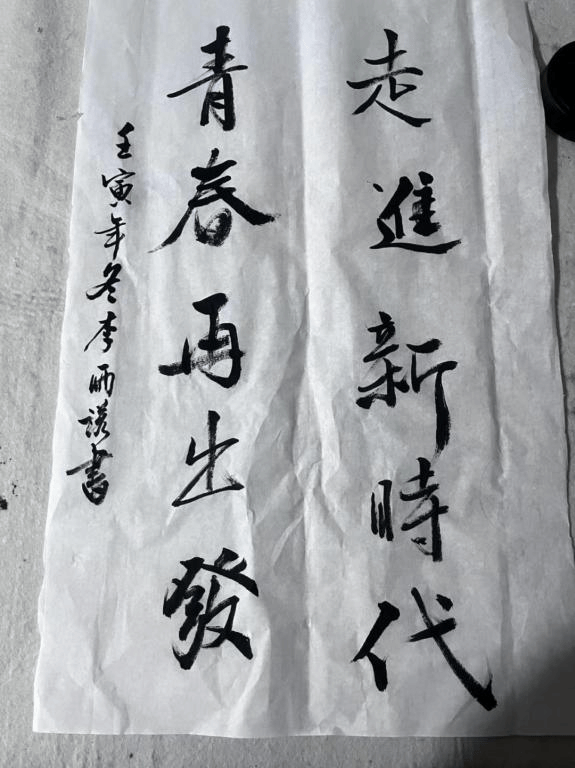 走進新時代
青春再出發
壬寅年冬李昞諾書